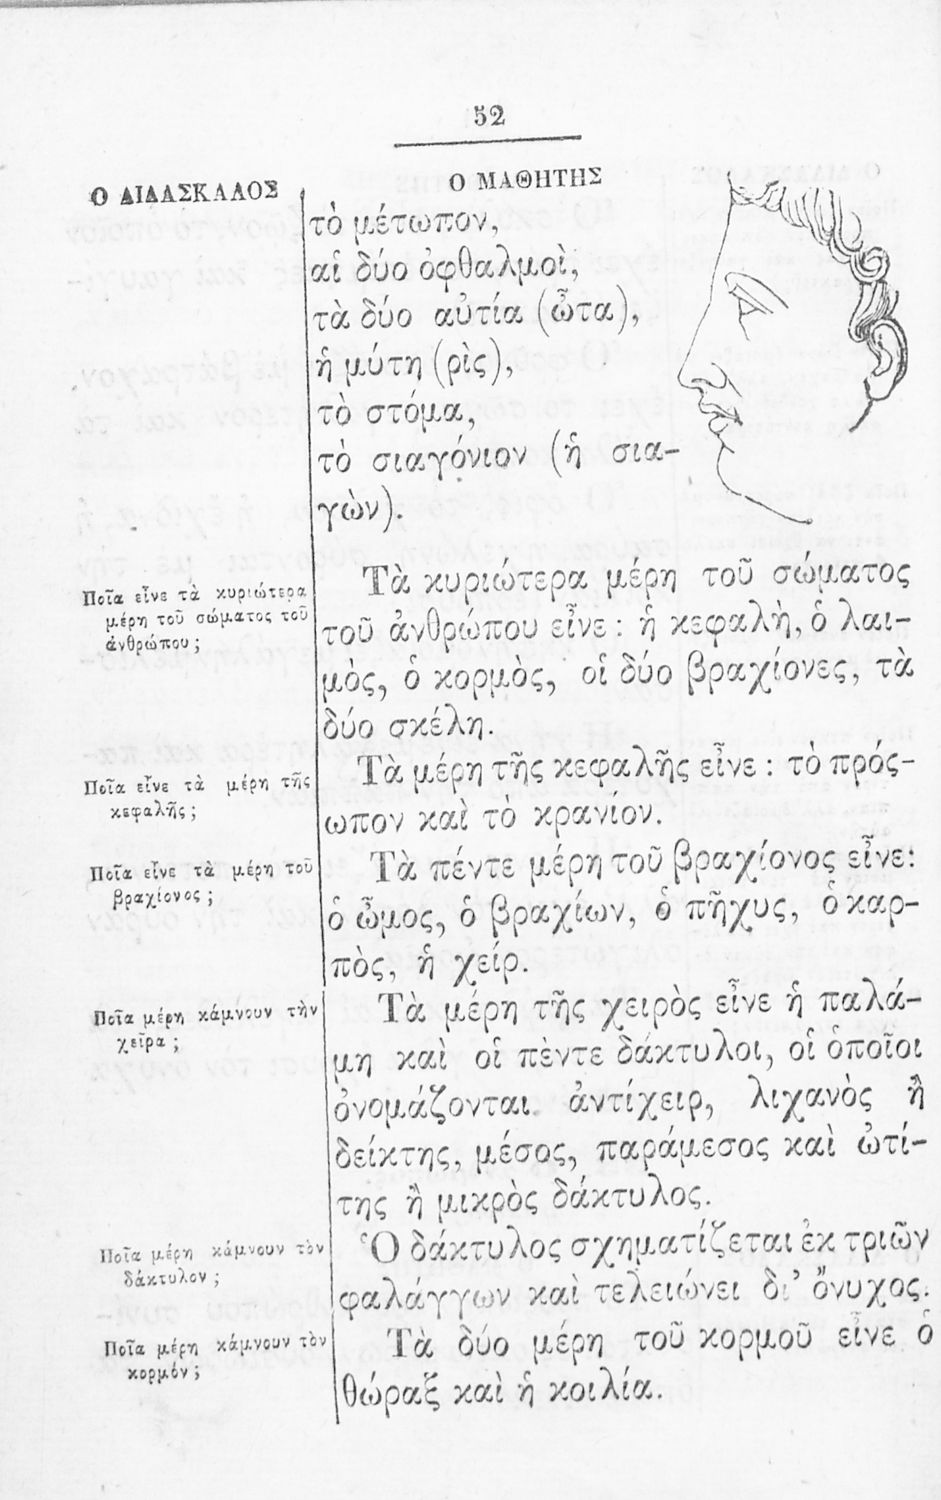 52
Ο ΔΙΔΑΣΚΑΛΟΣ
Ο ΜΑΘΗΤΗΣ
τὸ μέτωπον,
αἱ δύο ὀφθαλμοὶ,
τὰ δύο αὐτία (ὦτα),
ἡ μύτη (ρὶς),
τὸ στόμα,
τὸ σιαγόνιον (ἡ σια-
γὼν).
Ποῖα εἶνε τὰ κυριώτερα
μέρη τοῦ σώματος τοῦ
ἀνθρώπου ;
Τὰ κυριώτερα μέρη τοῦ σώματος
τοῦ ἀνθρώπου εἶνε : ἡ κεφαλὴ, ὁ λαι-
μὸς, ὁ κορμὸς, οἱ δύο βραχίονες, τὰ
δύο σκέλη.
Ποῖα εἶνε τὰ μέρη τῆς
κεφαλῆς ;
Τὰ μέρη τῆς κεφαλῆς εἶνε : τὸ πρόσ-
ωπον καὶ τὸ κρανίον.
Ποῖα εἶνε τὰ μέρη τοῦ
βραχίονος ;
Τὰ πέντε μέρη τοῦ βραχίονος εἶνε:
ὁ ὦμος, ὁ βραχίων, ὁ πῆχυς, ὁ καρ-
πὸς, ἡ χείρ.
Ποῖα μέρη κάμνουν τὴν
χεῖρα ;
Τὰ μέρη τῆς χειρὸς εἶνε ἡ παλά-
μη καὶ οἱ πὲντε δάκτυλοι, οἱ ὁποῖοι
ὀνομάζονται ἀντίχειρ, λιχανὸς ἢ
δείκτης, μέσος, παράμεσος καὶ ὠτί-
της ἢ μικρὸς δάκτυλος.
Ποῖα μέρη κάμνουν τὸν
δάκτυλον ;
Ὁ δάκτυλος σχηματίζεται ἐκ τριῶν
φαλάγγων καὶ τελειώνει δι' ὄνυχος.
Ποῖα μέρη κάμνουν τὸν
κορμόν ;
Τὰ δύο μέρη τοῦ κορμοῦ εἶνε ὁ
θώραξ καὶ ἡ κοιλία.